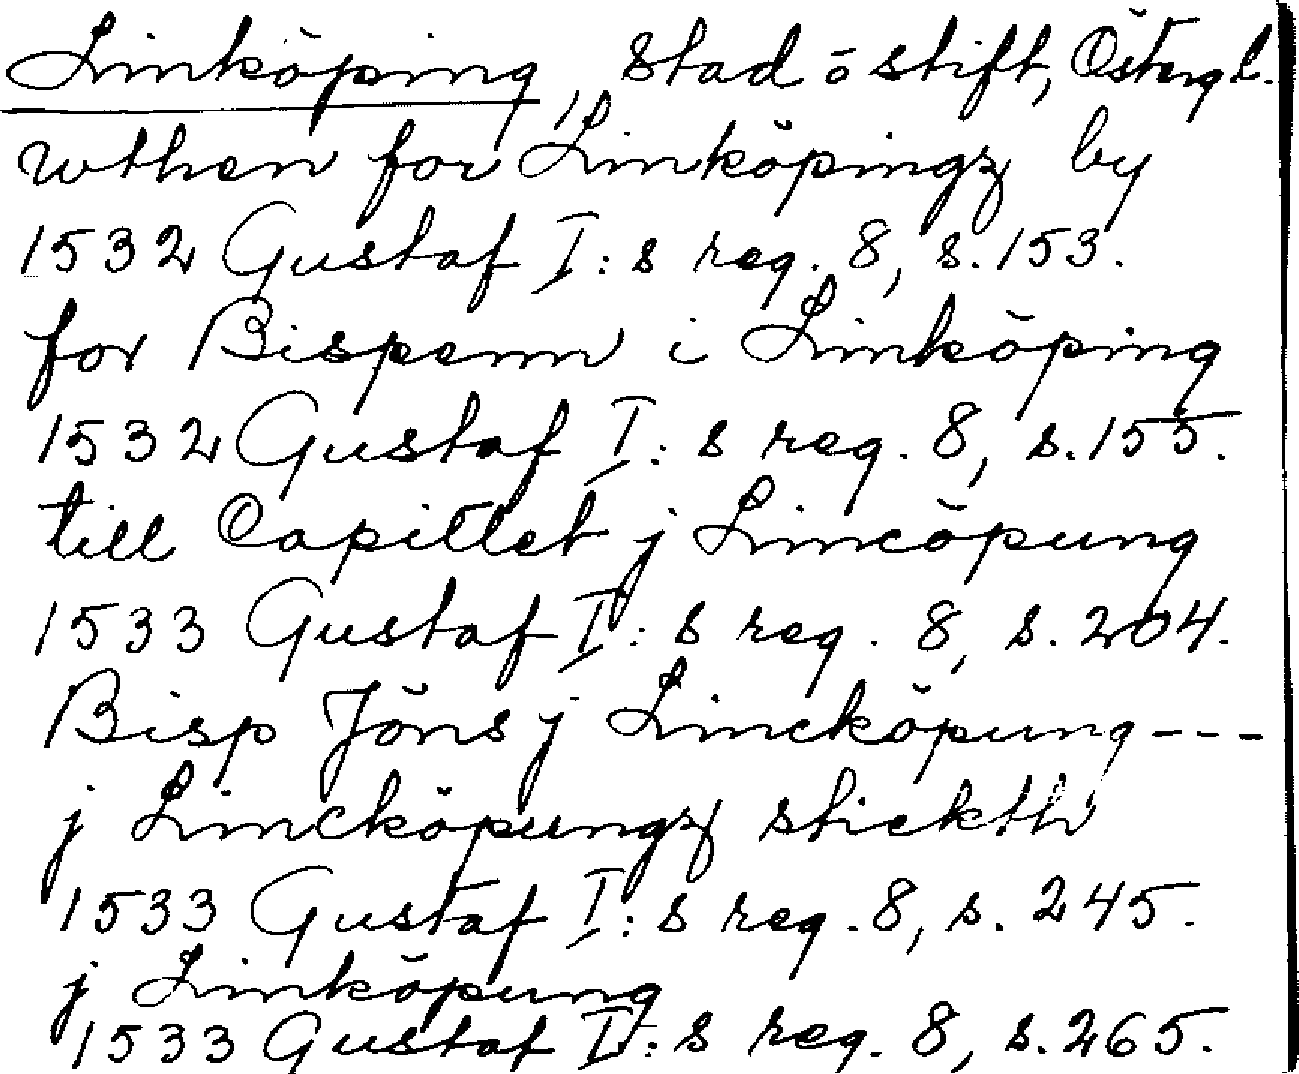 Linköping, stad o stift, Östergl.
wthen for Linköpingz by
1532 Gustaf I:s reg. 8, s. 153.
for Bispenn i Linköping
1532 Gustaf I:s reg. 8, s. 155.
till Capittlet j Lincöpung
1533 Gustaf I:s reg. 8, s. 204.
Bisp Jöns j Lincköpung----
j Lincköpungz stickth
1533 Gustaf I:s reg. 8, s. 245.
j Linköpung
1533 Gustaf I:s reg. 8, s. 265.